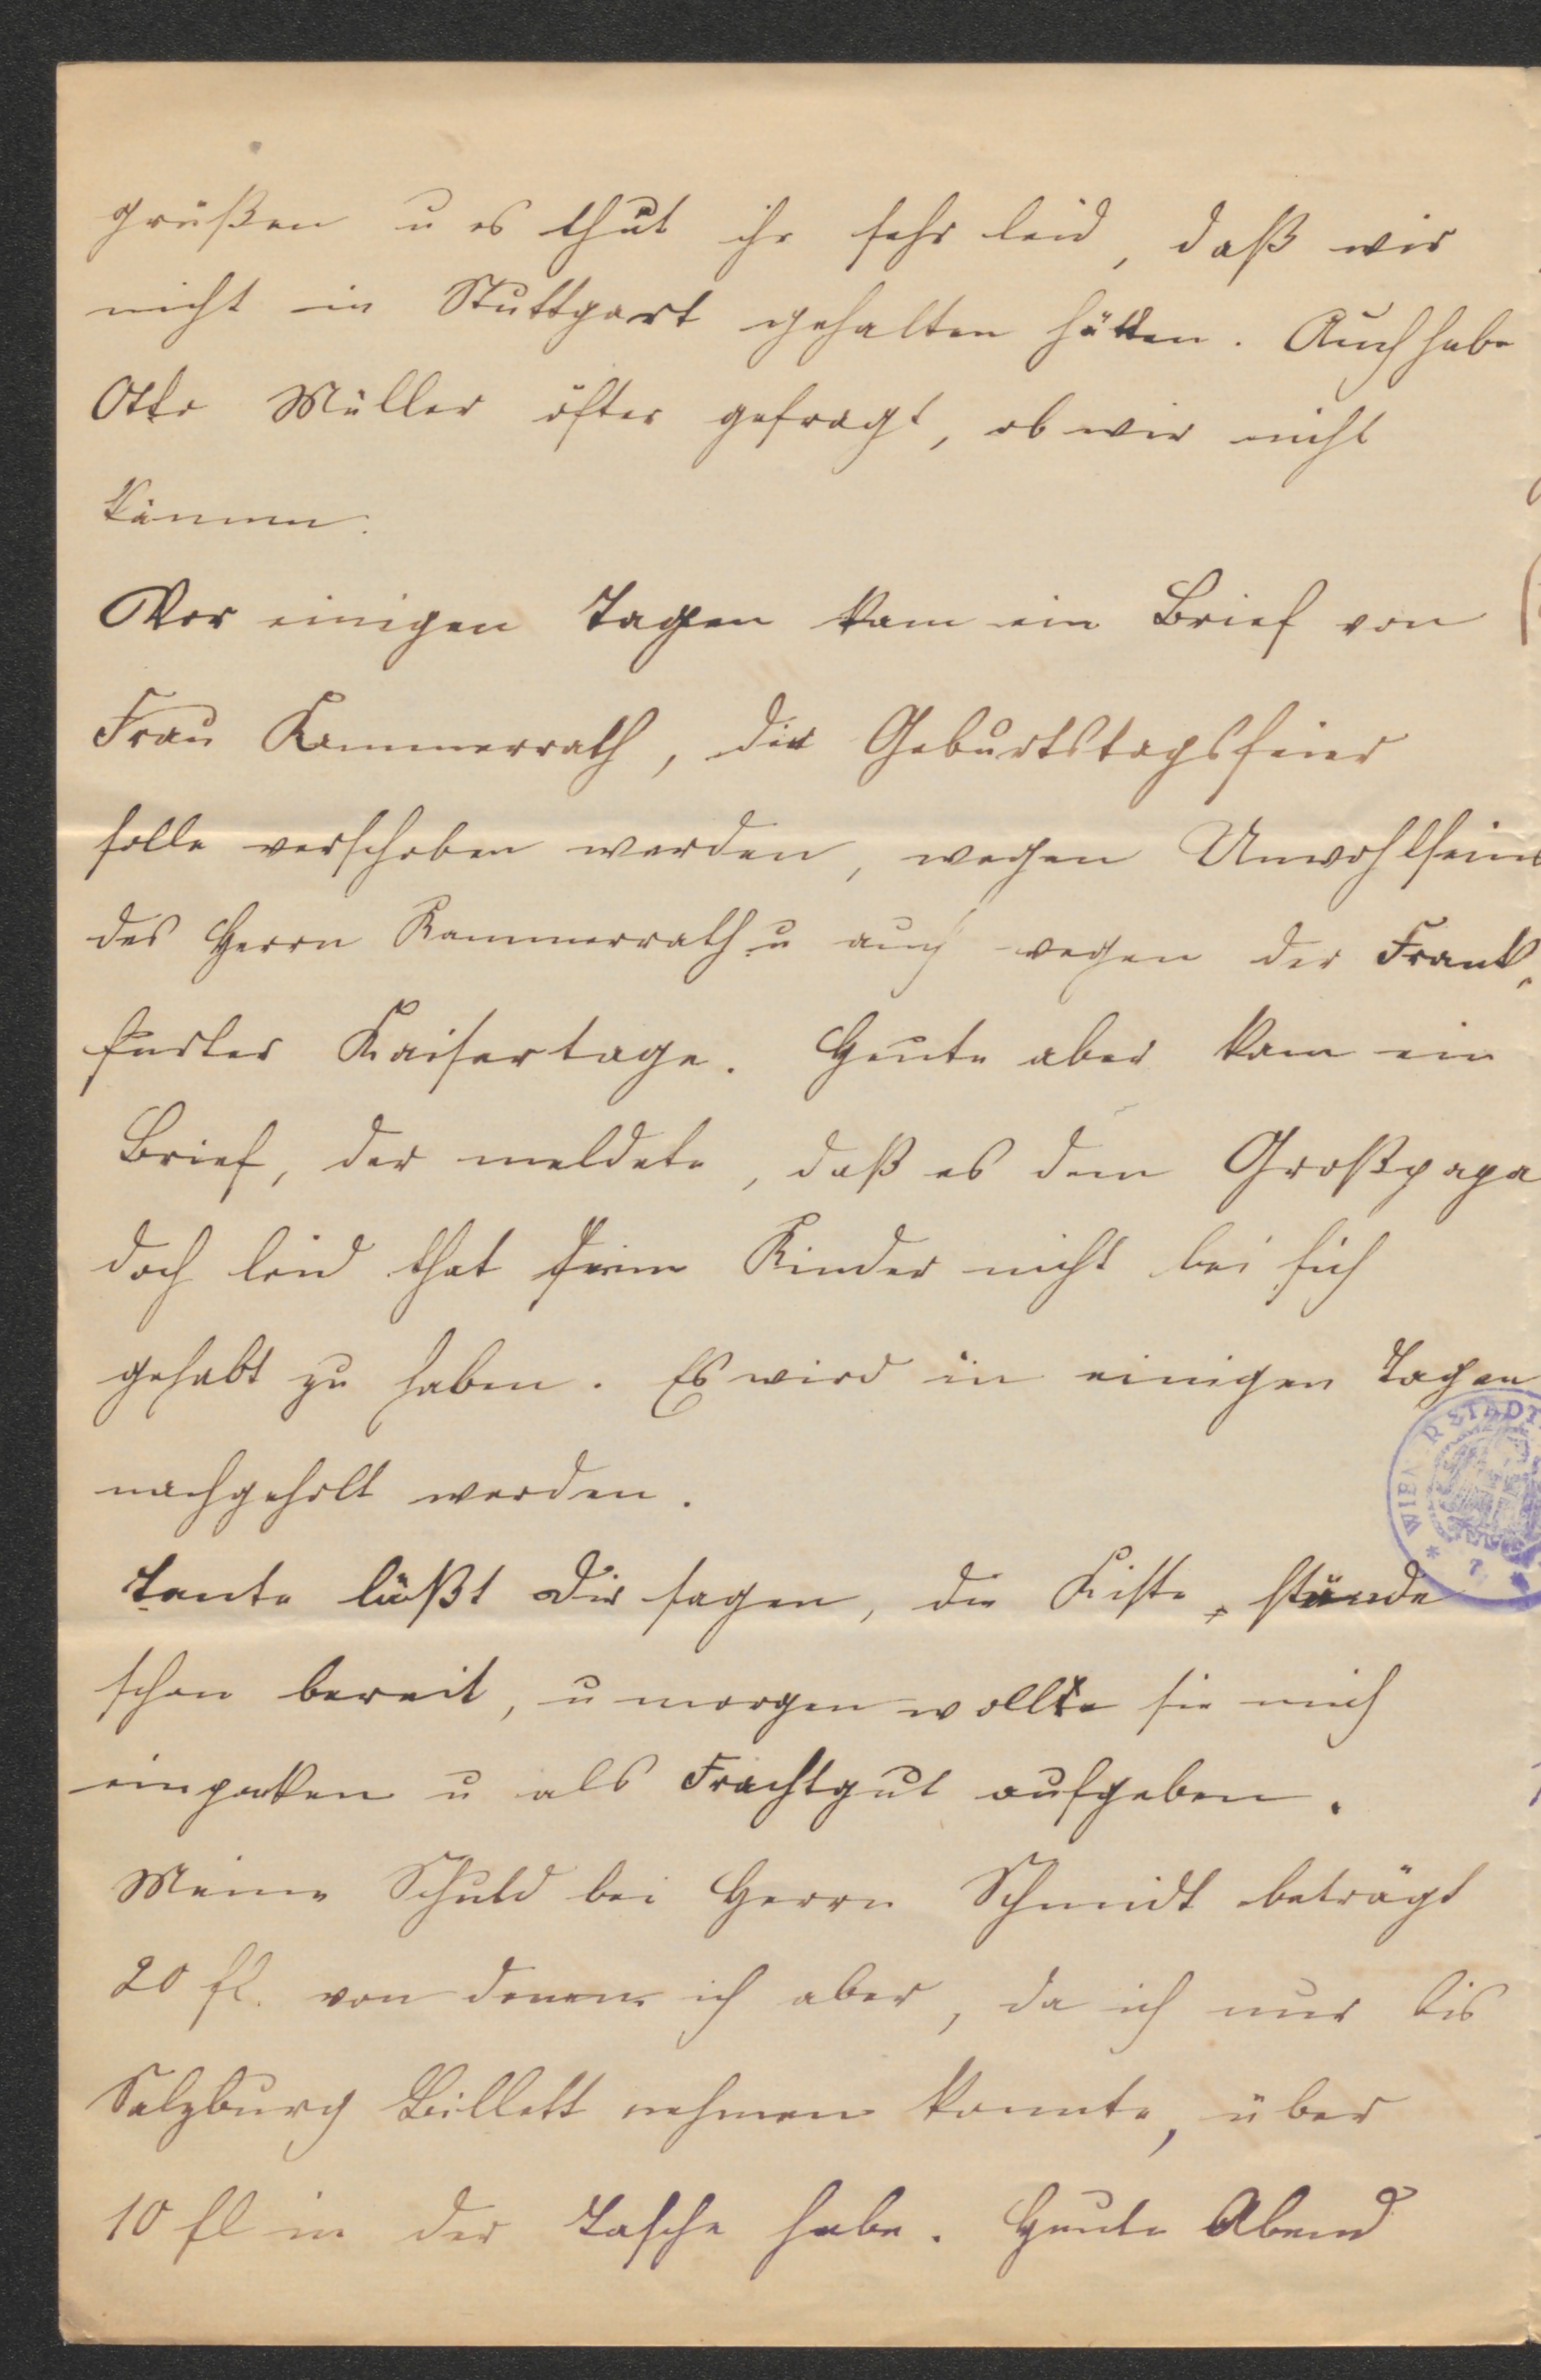 grüßen u es thut ihr sehr leid, daß wir
nicht in Stuttgart gehalten hätten. Auch habe
Otto Müller öfter gefragt, ob wir nicht
kämen.
Vor einigen Tagen kam ein Brief von
Frau Kammerrath, die Geburtstagsfeier
solle verschoben werden, wegen Unwohlseins
des Herrn Kammerrath u auch wegen der Frank„
furter Kaisertage. Heute aber kam ein
Brief, der meldete, daß es dem Großpapa
doch leid that seine Kinder nicht bei sich
gehabt zu haben. Es wird in einigen Tagen
nachgeholt werden.
Tante läßt Dir sagen, die Kiste stünde
schon bereit, u morgen wollte sie mich
einpacken u als Frachtgut aufgeben.
Meine Schuld bei Herrn Schmidt beträgt
20 fl. von denen ich aber, da ich nur bis
Salzburg Billett nehmen konnte, über
10 fl in der Tasche habe. Heute Abend